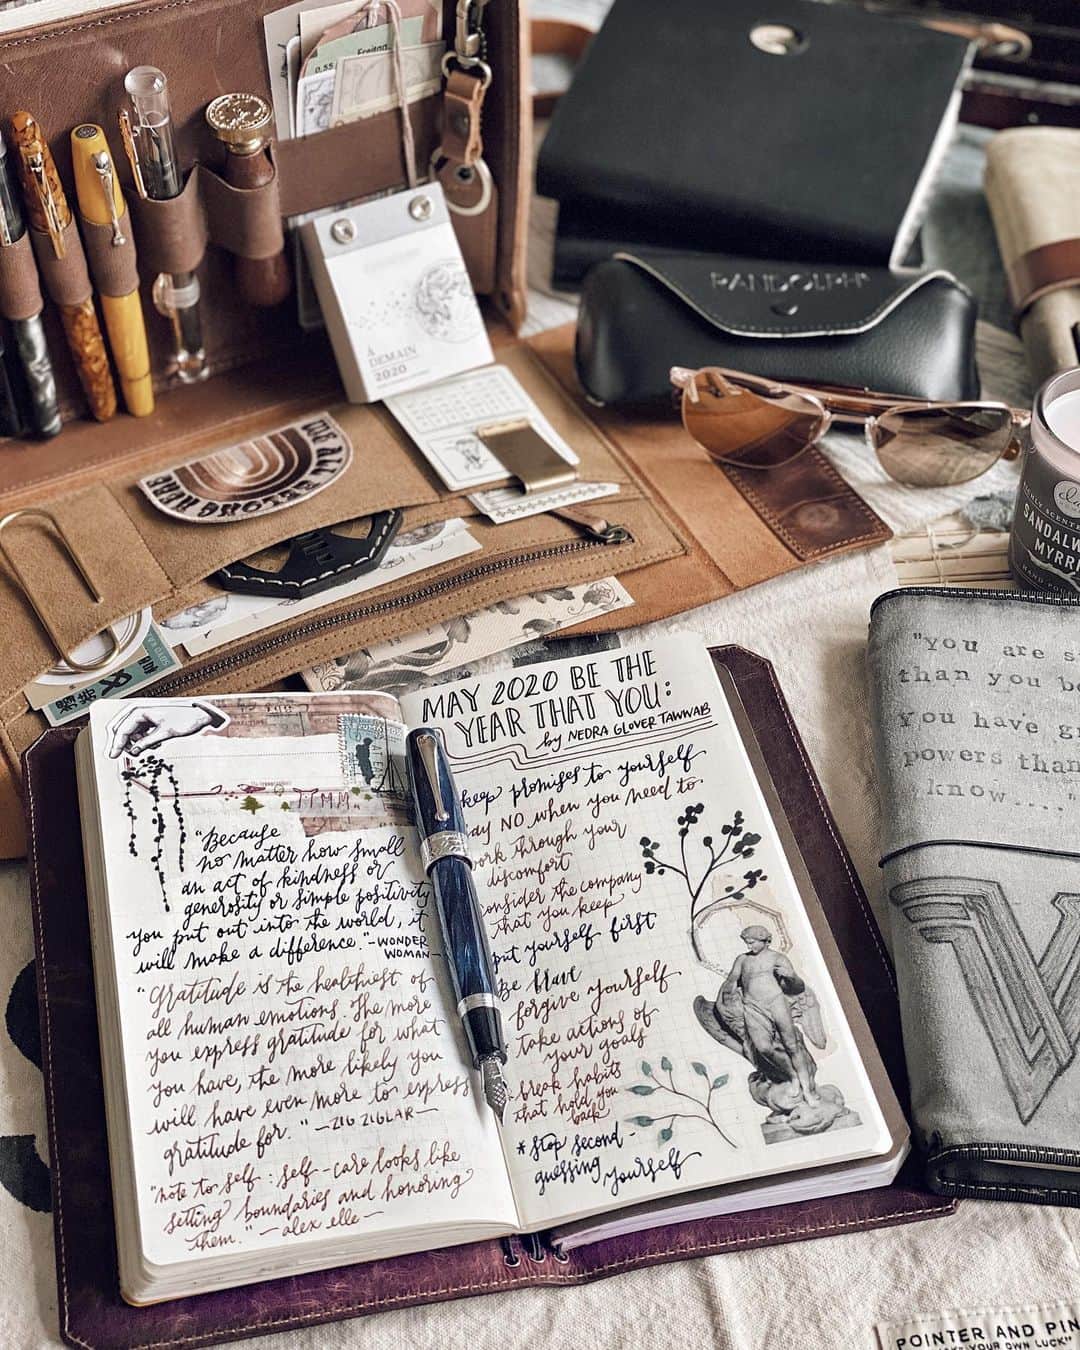 Freitag
0.55
RANDOLPH
À
DEMAIN
2020
WE ALL
BELONG HERE
SANDALW
MYRR
"You are s
than you b
you have g
powers than
know...."
MAY 2020 BE THE
YEAR THAT YOU:
by NEDRA GLOVER TAWWAB
keep promises to yourself
say NO when you need to
work through your
discomfort
consider the company
that you keep
put yourself first
Be brave
forgive yourself
* take actions of
your goals
* break habits
that hold you
back
* stop second-
guessing yourself
"Because
no matter how small
an act of kindness or
generosity or simple positivity
you put out into the world, it
will make a difference." - WONDER
WOMAN -
"Gratitude is the healthiest of
all human emotions. The more
you express gratitude for what
you have, the more likely you
will have even more to express
gratitude for." - ZIG ZIGLAR -
"note to self: self-care looks like
setting boundaries and honoring
them." - alex elle -
POINTER AND PIN
YOUR OWN LUCK"